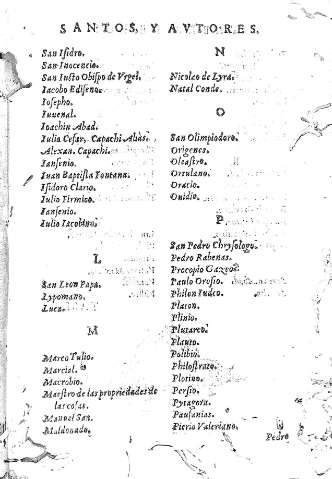 SANTOS, Y AVTORES.
San Isidro.
San Inocencio.
San Iusto Obispo de Vrgel.
Iacobo Ediseno.
Iosepho.
Iuuenal.
Ioachin Abad.
Iulio Cesar, Capachi Alias.
Alexan. Capachi.
Iansenio.
Iuan Baptista Fontana.
Isidoro Clario.
Iulio Firmico.
Iansenio.
Iulio Iacobino.
L
San Leon Papa.
Lypomano.
Lucz.
M
Marco Tulio.
Marcial.
Macrobio.
Maestro de las propriedades de
las cosas.
Manuel San.
Maldonado.
N
Nicolao de Lyra.
Natal Conde.
O
San Olimpiodoro.
Origenes.
Oleastro.
Orculano.
Oracio.
Ouidio.
P
San Pedro Chrysologo.
Pedro Rabenas.
Procopio Gazeos.
Paulo Orosio.
Philon Iudeo.
Platon.
Plinio.
Plutarco.
Plauto.
Polibio.
Philostrato.
Plotino.
Persio.
Pytagora.
Pausanias.
Pierio Valeriano.
Pedro